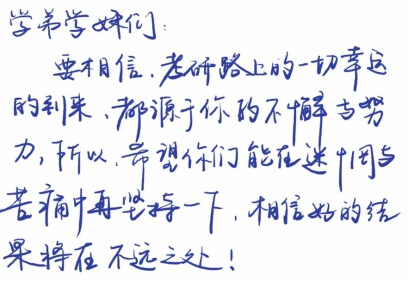 学弟学妹们:
要相信,考研路上的一切幸运
的到来,都源于你的不懈与努
力,所以,希望你们能在迷惘与
苦痛中再坚持一下,相信好的结
果将在不远之处!